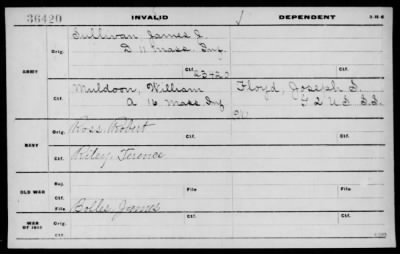 36420 INVALID DEPENDENT 3-15-6
Sullivan James J.
Orig. D 11 Mass. Inf.
Ctf. 23420
ARMY
Muldoon, William Floyd, Joseph
Ctf. A 16 Mass Inf G 2 U.S. S.S.
Orig. Ross, Robert Orig.
NAVY
Ctf. Riley, Terence Ctf.
Rej. File
OLD WAR
Ctf. Ctf.
File Bolles, James
WAR OF 1812 Orig. Ctf.
Ctf.